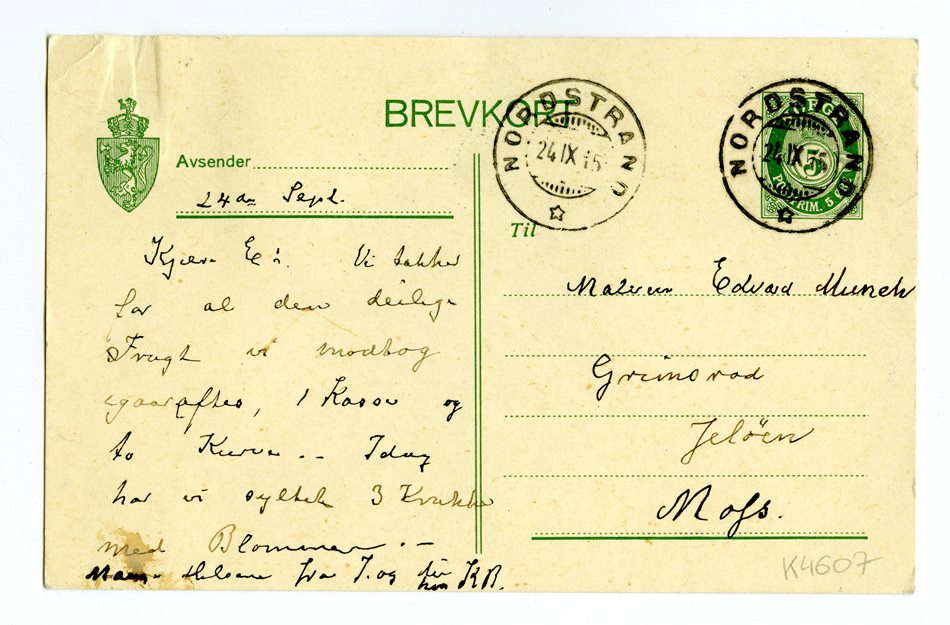 BREVKORT
Avsender
24de Sept.
Kjære E
Vi takker
for al den deilige
Frugt vi modtog
igaaraftes, 1 Kasse og
to Kurve. - Idag
har vi syltet 3 Krukker
med Blommer. -
Hilsene fra I. og
KB.
NORDSTRAND
24 IX 15
NORDSTRAND
24 IX 15
NORGE
5
POSTFRIM. 5 ØRE
Til
Maleren Edvard Munch
Grimsrød
Jeløen
Moss.
K4607